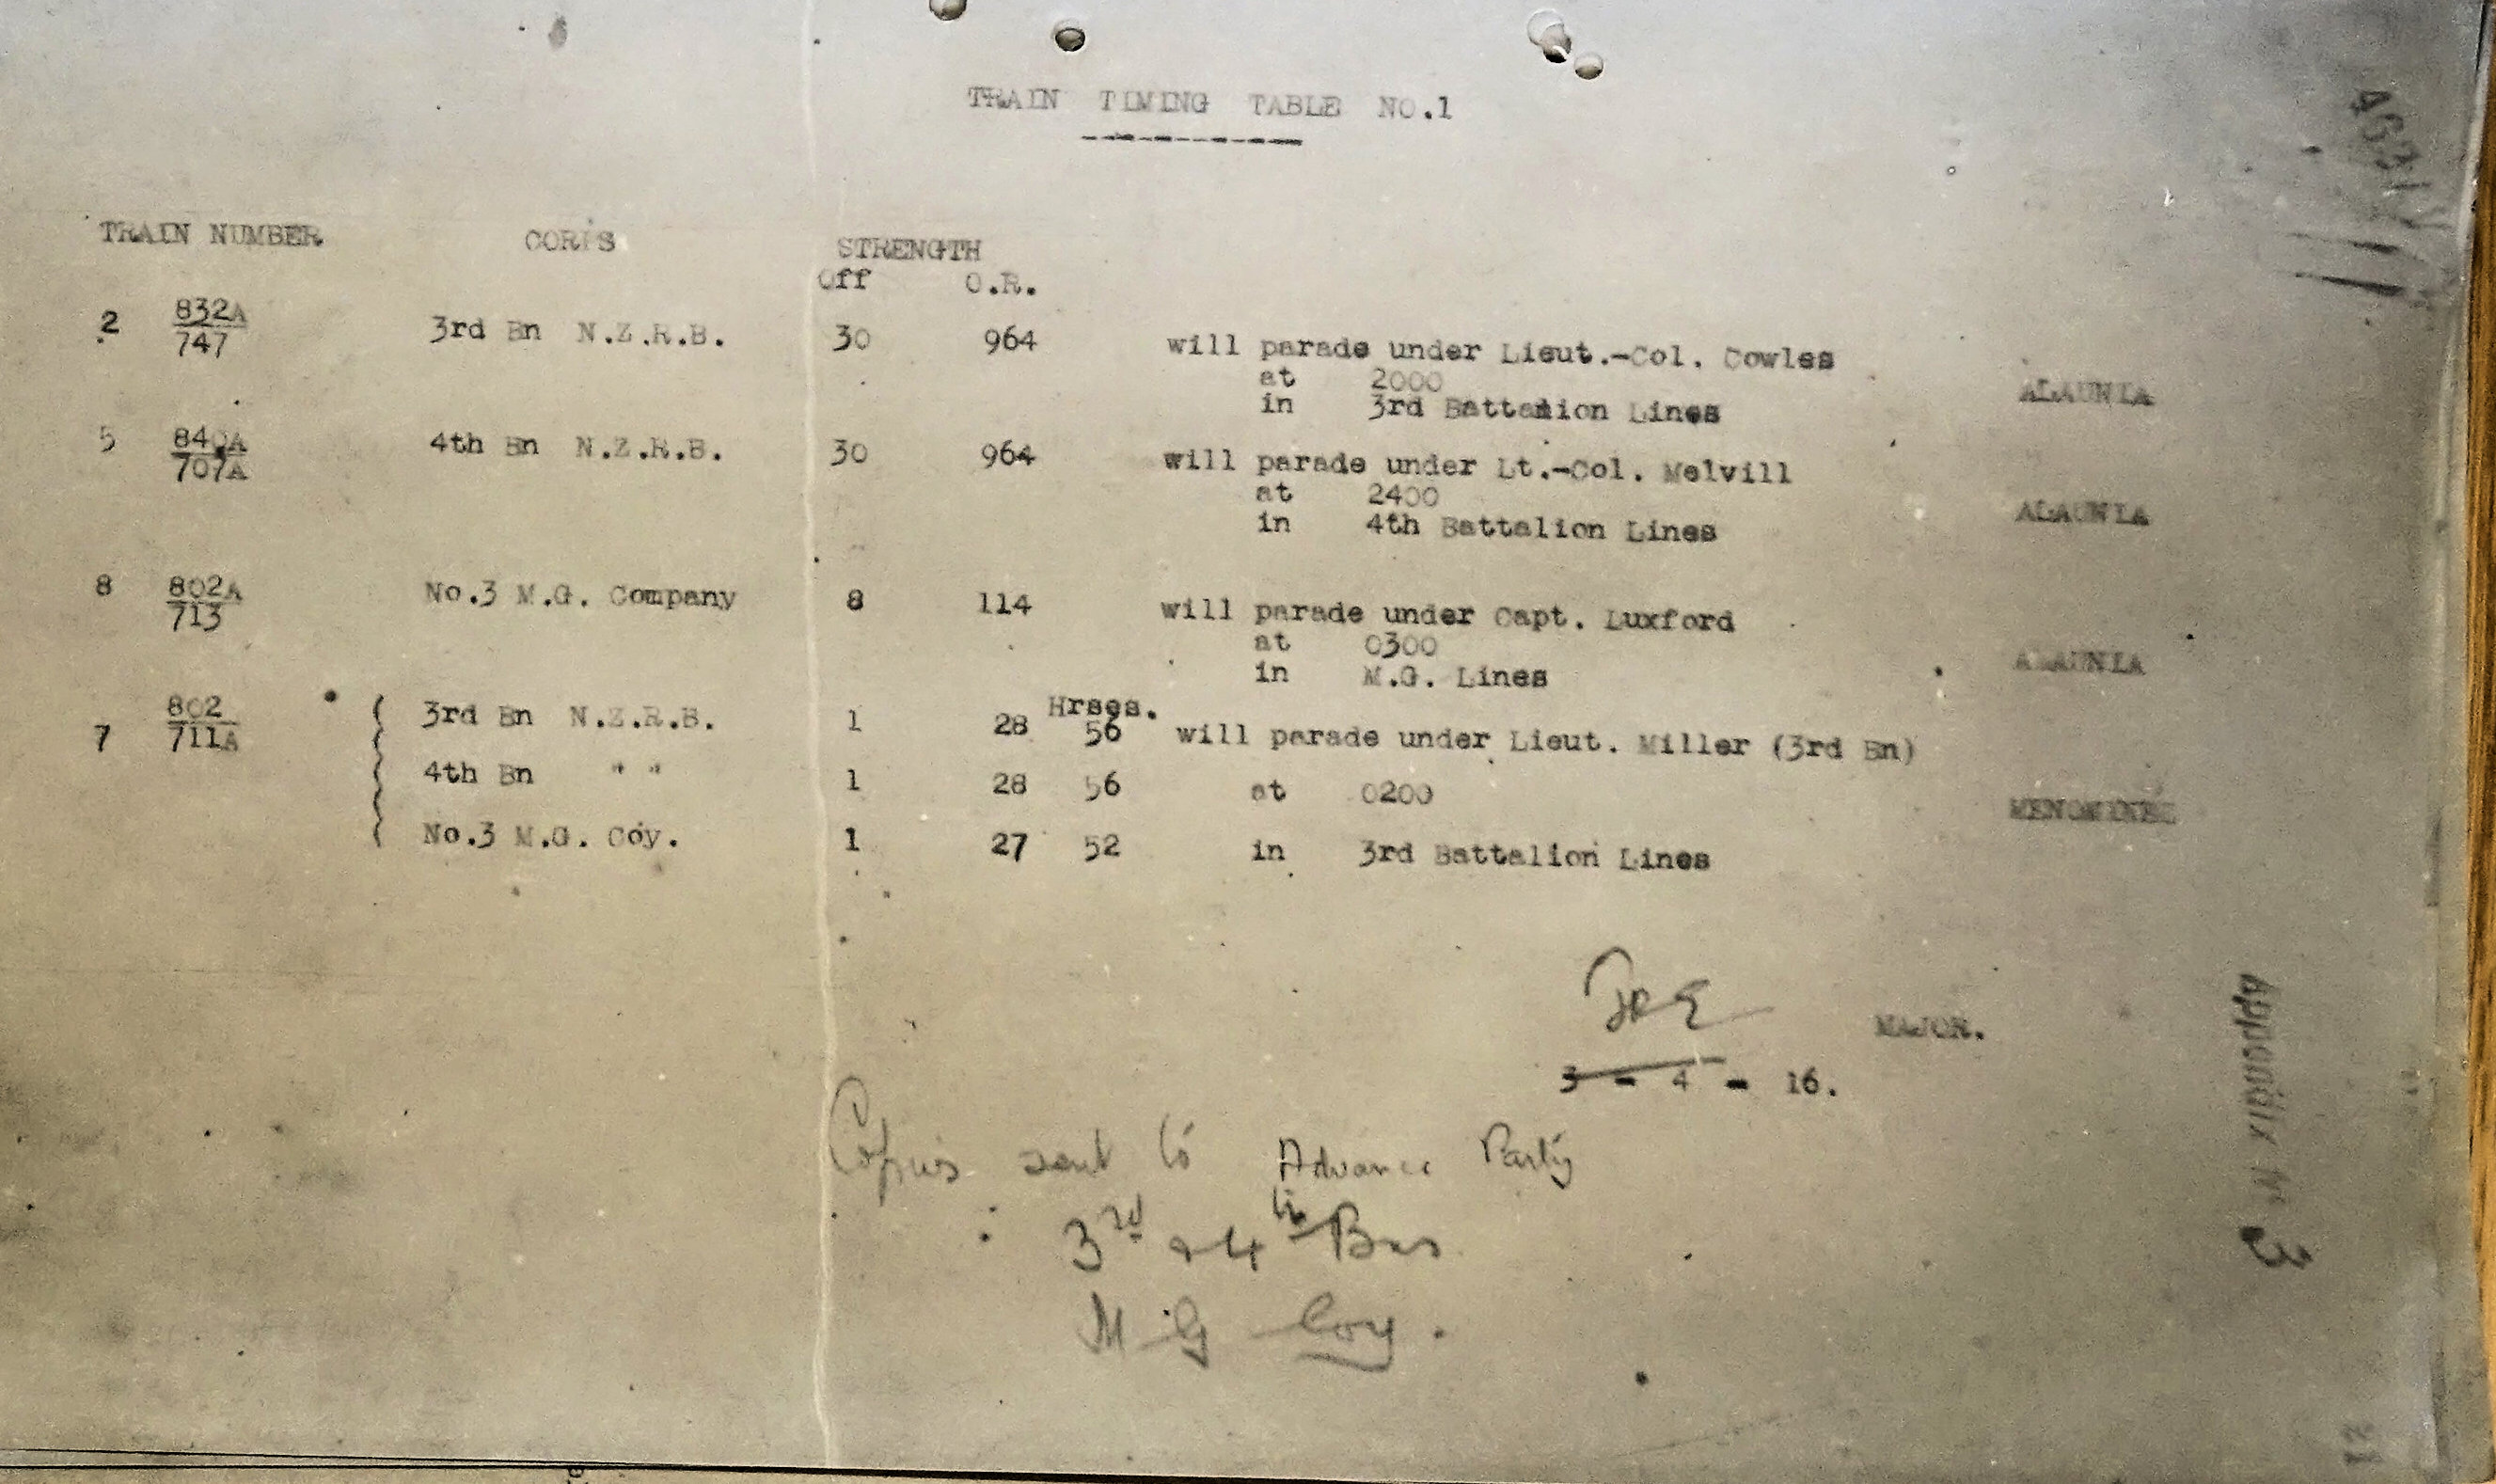 TRAIN TIMING TABLE NO.1
TRAIN NUMBER CORPS STRENGTH
Off O.R.
2 832A/747 3rd Bn N.Z.R.B. 30 964 will parade under Lieut.-Col. Cowles
at 2000
in 3rd Battalion Lines ALAUNIA
5 840A/707A 4th Bn N.Z.R.B. 30 964 will parade under Lt.-Col. Melvill
at 2400
in 4th Battalion Lines ALAUNIA
8 802A/713 No.3 M.G. Company 8 114 will parade under Capt. Luxford
at 0300
in M.G. Lines ALAUNIA
Hrses.
7 802/711A 3rd Bn N.Z.R.B. 1 28 56 will parade under Lieut. Miller (3rd Bn)
4th Bn " " 1 28 56 at 0200 MENOMINEE
No.3 M.G. Coy. 1 27 52 in 3rd Battalion Lines
MAJOR.
3 - 4 - 16.
Copies sent to Advance Party
3rd & 4th Bns
M G Coy.
Appendix 3
12